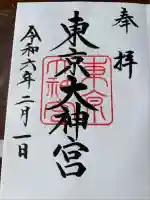 奉拝
東京大神宮
東京大神宮
令和六年二月一日